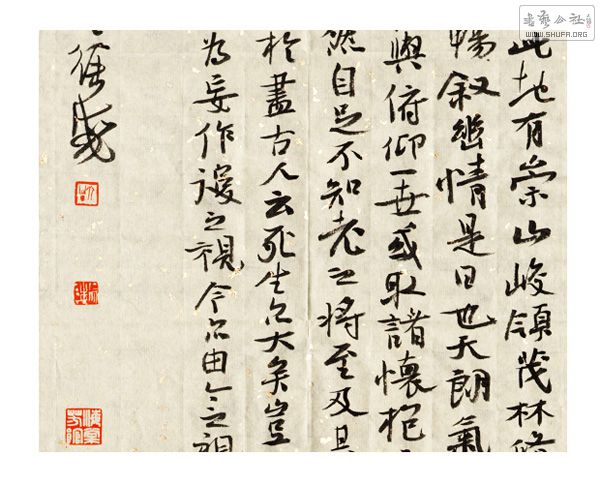 此地有崇山峻領茂林脩
暢叙幽情是日也天朗氣
與俯仰一世或取諸懷抱
然自足不知老之將至及其
於盡古人云死生亦大矣豈
為妄作後之視今亦由今之視
書藝公社
WWW.SHUFA.ORG